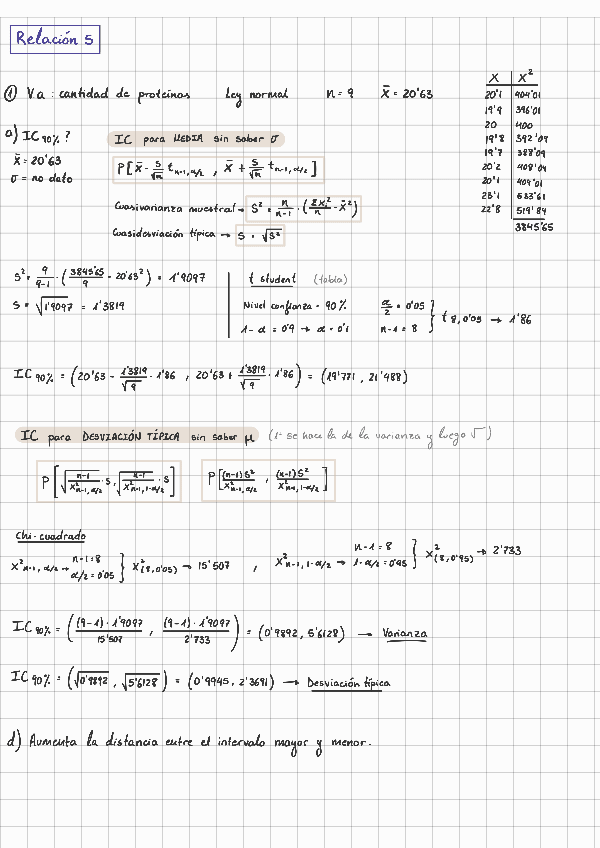 Relación 5
① V.a : cantidad de proteínas   Ley normal   n = 9   X̄ = 20'63
X | X²
20'1 | 404'01
19'9 | 396'01
20 | 400
19'8 | 392'04
19'7 | 388'09
20'2 | 408'04
20'1 | 404'01
23'1 | 533'61
22'8 | 519'84
3845'65
a) IC 90% ?   IC para MEDIA sin saber σ
X̄ = 20'63
σ = no dato
P[ X̄ - S/√n t n-1, α/2 , X̄ + S/√n t n-1, α/2 ]
Cuasivarianza muestral → S² = n/(n-1) · ( Σxᵢ²/n - X̄² )
Cuasidesviación típica → S = √S²
S² = 9/(9-1) · ( 3845'65/9 - 20'63² ) = 1'9097
S = √1'9097 = 1'3819
t student (tabla)
Nivel confianza = 90%   α/2 = 0'05
1 - α = 0'9 → α = 0'1   n-1 = 8   } t 8, 0'05 → 1'86
IC 90% = ( 20'63 - 1'3819/√9 · 1'86 , 20'63 + 1'3819/√9 · 1'86 ) = (19'771, 21'488)
IC para DESVIACIÓN TÍPICA sin saber μ (1º se hace la de la varianza y luego √ )
P[ √((n-1)/X² n-1, α/2) · S , √((n-1)/X² n-1, 1-α/2) · S ]   P[ (n-1)S²/X² n-1, α/2 , (n-1)S²/X² n-1, 1-α/2 ]
Chi-cuadrado
X² n-1, α/2 → n-1 = 8   α/2 = 0'05 } X² (8, 0'05) → 15'507 , X² n-1, 1-α/2 → n-1 = 8   1-α/2 = 0'95 } X² (8, 0'95) → 2'733
IC 90% = ( (9-1) · 1'9097/15'507 , (9-1) · 1'9097/2'733 ) = (0'9892, 5'6128) → Varianza
IC 90% = ( √0'9892 , √5'6128 ) = (0'9945, 2'3691) → Desviación típica
d) Aumenta la distancia entre el intervalo mayor y menor.